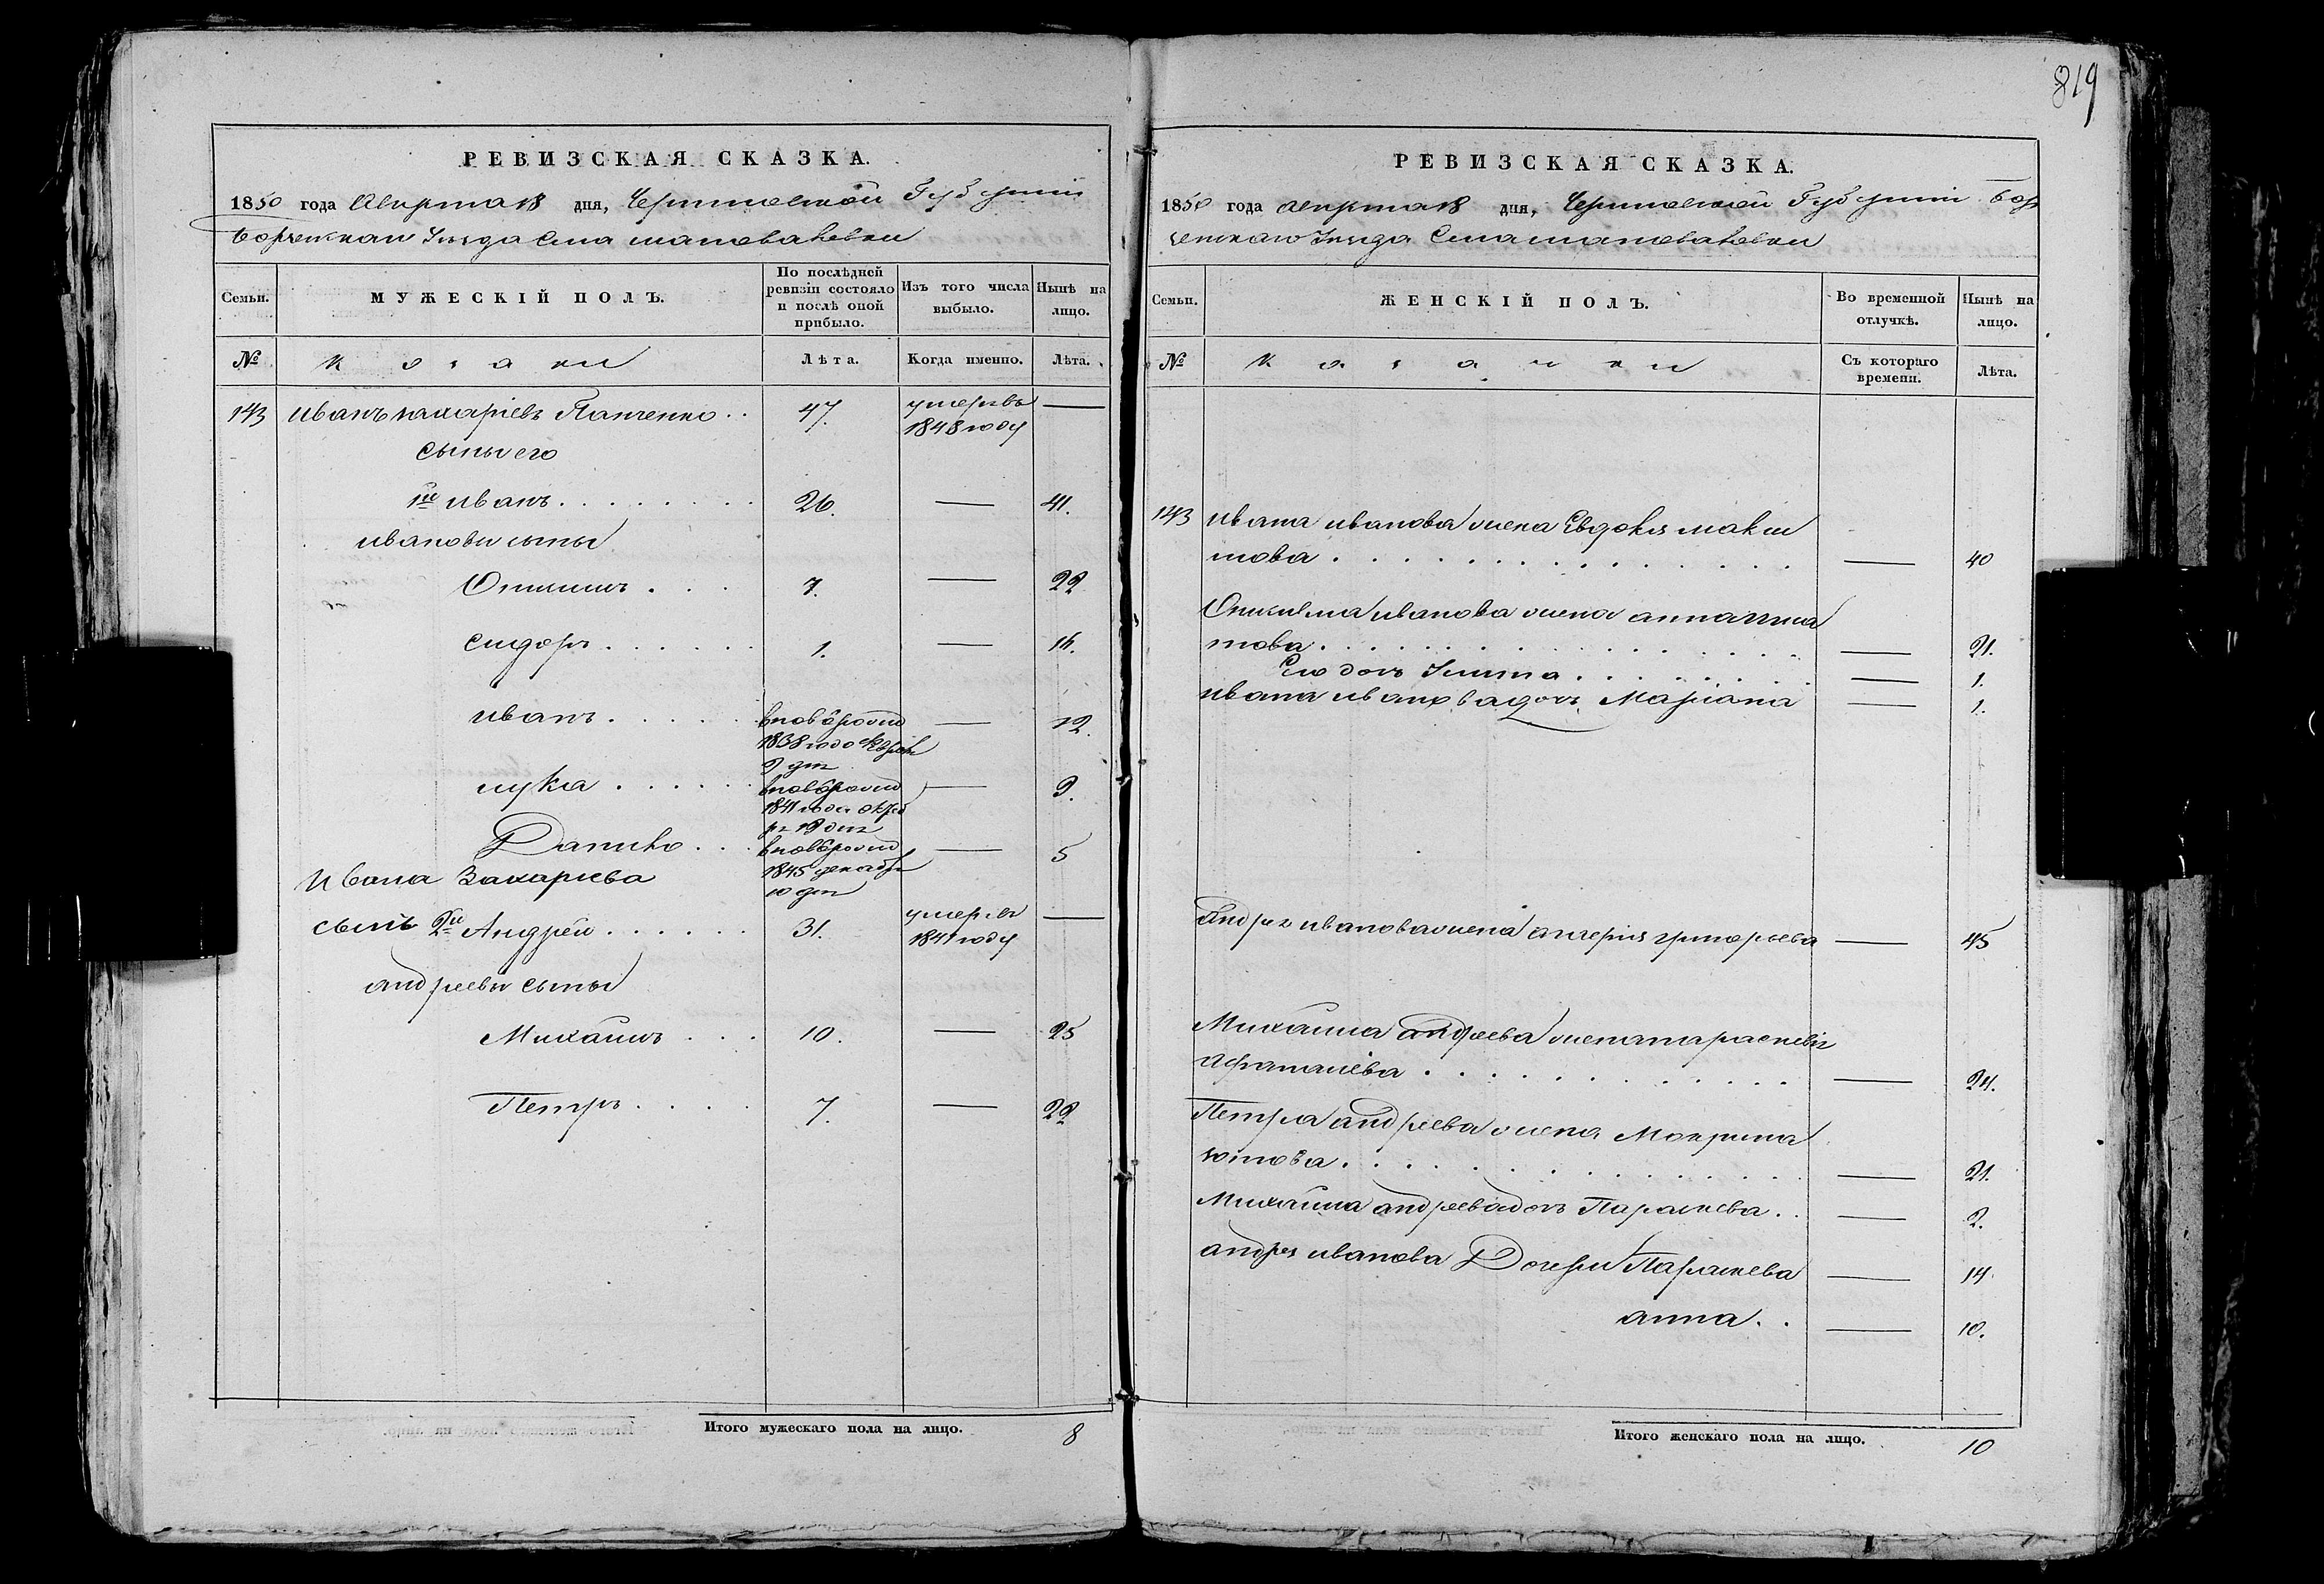 819
РЕВИЗСКАЯ СКАЗКА.
1850 года Августа 18 дня, Черниговской Губернии
Борзенскаго Уезда Села
Семьи. МУЖЕСКІЙ ПОЛЪ. По послѣдней ревизіи состояло и послѣ оной прибыло. Изъ того числа выбыло. Нынѣ на лицо.
№ Козаки Лѣта. Когда именно. Лѣта.
143 Иванъ Захаріевъ Панченко . . 47. умеръ въ 1848 году —
сыны его
1й Иванъ . . . 26. — 41.
Ивановы сыны
7. — 22
Сидоръ . . . 1. — 16.
Иванъ . . . 1838 года 9 дня — 12.
Лука . . . 1841 года 19 дня — 9.
Данило . . . 1845 декабря 10 дня — 5
Ивана Захарiева
сынъ 2й Андрей . . . 31. умеръ въ 1841 году —
Андреевы сыны
Михаилъ . . . 10. — 25
Петръ . . . 7. — 22
Итого мужескаго пола на лицо. 8
РЕВИЗСКАЯ СКАЗКА.
1850 года Августа 18 дня, Черниговской Губернии Бор
зенскаго Уезда Села
Семьи. ЖЕНСКІЙ ПОЛЪ. Во временной отлучкѣ. Нынѣ на лицо.
№ Козачки Съ котораго времени. Лѣта.
143 Ивана Иванова жена Евдокия Макси
мова . . . — 40
Иванова жена Анна
това . . . — 21.
Его дочь . . . — 1.
Ивана Иванова дочь Мариана — 1.
Андрея Иванова жена Григорьева — 45
Михаила Андреева жена Параскевия
. . . — 24.
Петра Андреева жена Мокрина
Титова . . . — 21.
Михаила Андреева дочь Параскева . . — 2.
Андрея Иванова Дочери Параскева — 14.
Анна . . — 10.
Итого женскаго пола на лицо. 10